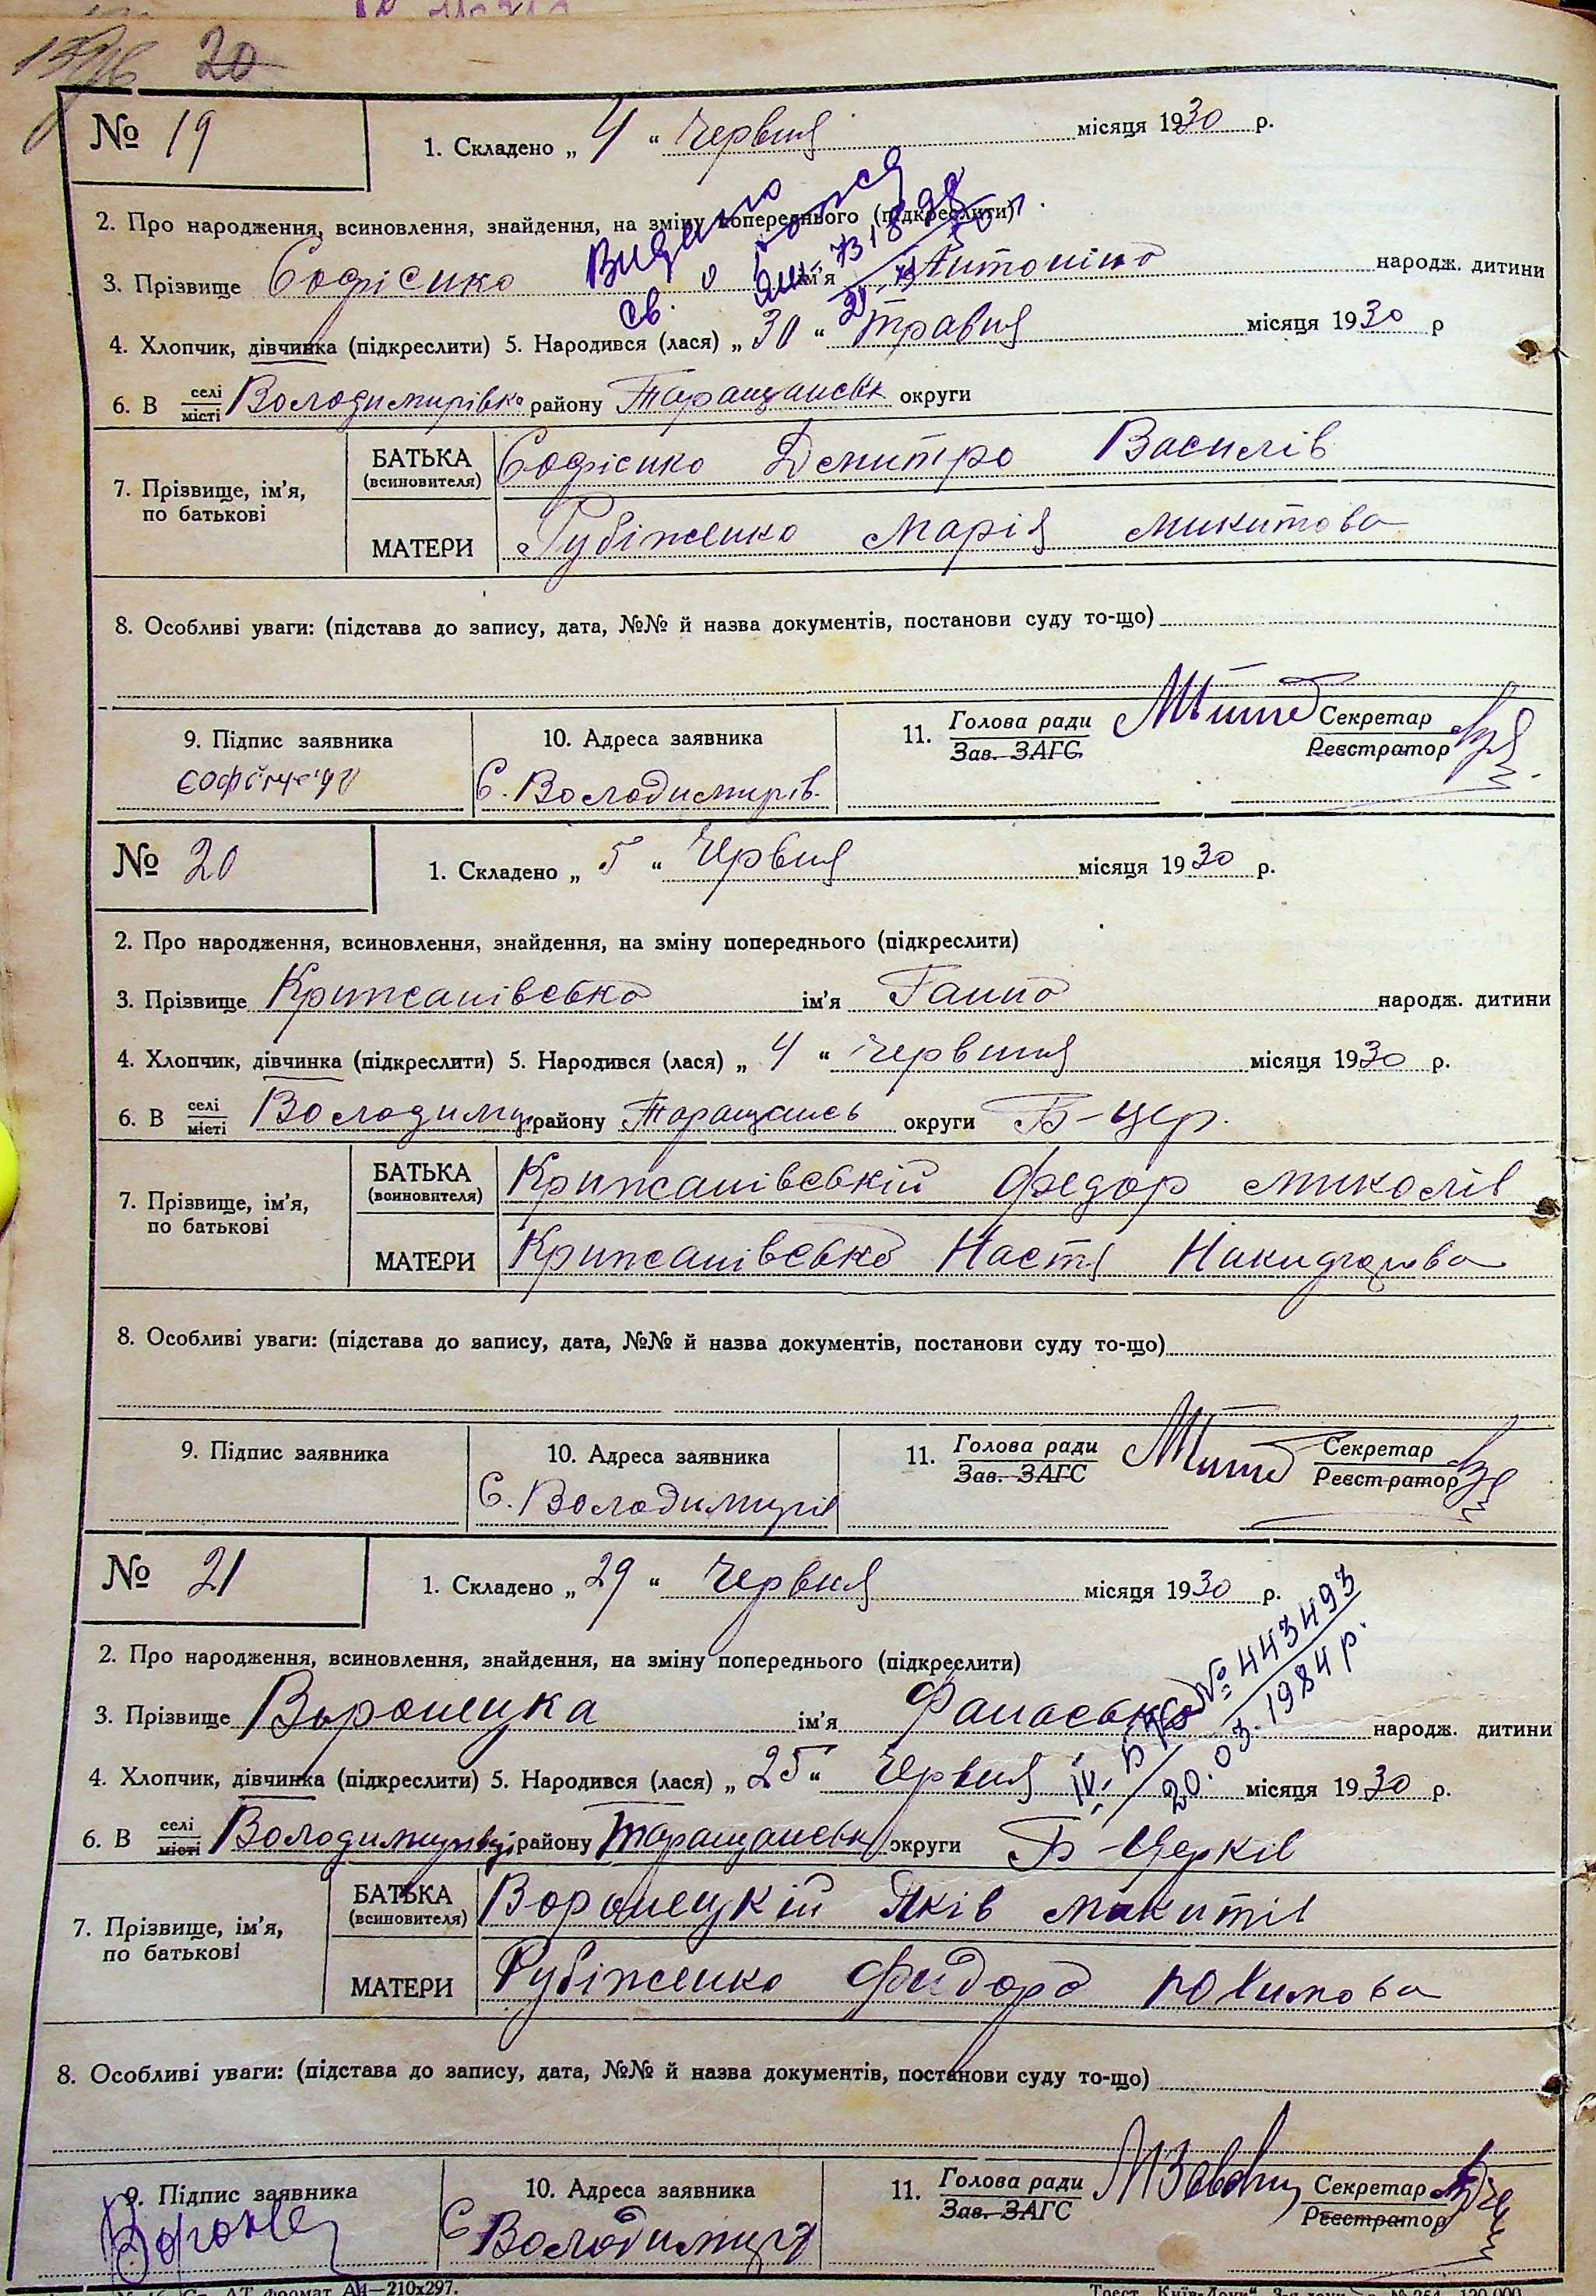 20
№ 19
1. Складено „ 4 “ Червня місяця 1930 р.
2. Про народження, всиновлення, знайдення, на зміну попереднього (підкреслити)
Видано
св. о
3. Прізвище Софієнко ім'я Антоніна народж. дитини
4. Хлопчик, дівчинка (підкреслити) 5. Народився (лася) „ 30 “ травня місяця 1930 р
6. В селі місті Володимирівка району Таращанськ округи
7. Прізвище, ім'я, по батькові
БАТЬКА (всиновителя) Софієнко Дмитро Василів
МАТЕРИ Рубіженко Марія Микитова
8. Особливі уваги: (підстава до запису, дата, №№ й назва документів, постанови суду то-що)
9. Підпис заявника 10. Адреса заявника 11. Голова ради Зав. ЗАГС Секретар Реєстратор
С. Володимирів.
№ 20
1. Складено „ 5 “ Червня місяця 1930 р.
2. Про народження, всиновлення, знайдення, на зміну попереднього (підкреслити)
3. Прізвище Крижанівська ім'я Ганна народж. дитини
4. Хлопчик, дівчинка (підкреслити) 5. Народився (лася) „ 4 “ червня місяця 1930 р.
6. В селі місті Володимир району Таращансь округи Б-Цер.
7. Прізвище, ім'я, по батькові
БАТЬКА (воиновителя) Крижанівській Федор Миколів
МАТЕРИ Крижанівська Настя
8. Особливі уваги: (підстава до запису, дата, №№ й назва документів, постанови суду то-що)
9. Підпис заявника 10. Адреса заявника 11. Голова ради Зав. ЗАГС Секретар Реєстратор
С. Володимирів
№ 21
1. Складено „ 29 “ Червня місяця 1930 р.
2. Про народження, всиновлення, знайдення, на зміну попереднього (підкреслити)
№ 443493
20.03.1984 р.
3. Прізвище Воронецка ім'я народж. дитини
4. Хлопчик, дівчинка (підкреслити) 5. Народився (лася) „ 25 “ Червня місяця 1930 р.
6. В селі місті Володимирівці району Таращанськ округи Б-Церків
7. Прізвище, ім'я, по батькові
БАТЬКА (всиновителя) Воронецкій Яків Микитів
МАТЕРИ Рубіженко Федора Юхимова
8. Особливі уваги: (підстава до запису, дата, №№ й назва документів, постанови суду то-що)
9. Підпис заявника 10. Адреса заявника 11. Голова ради Зав. ЗАГС Секретар Реєстратор
Вороне С Володимир
формат А4—210х297.